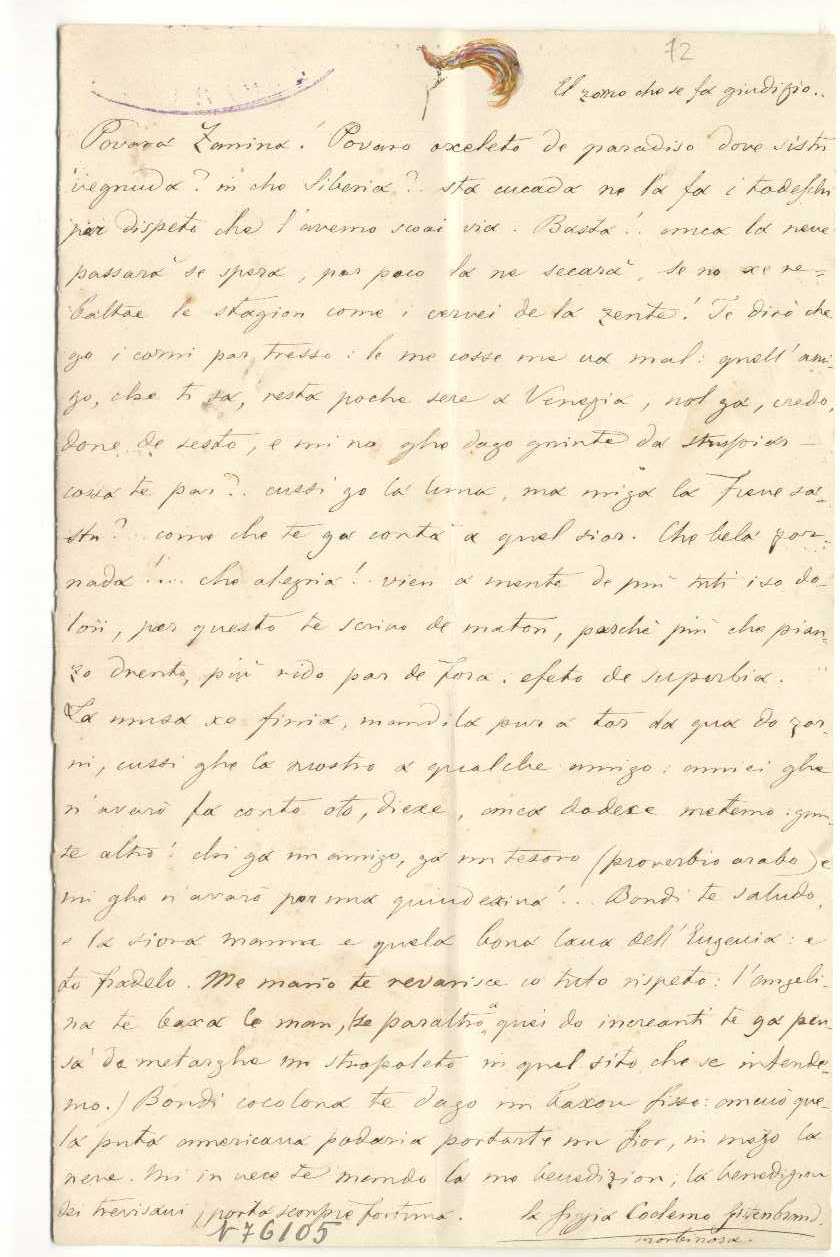 72
El zorno che se fa giudizio..
Povara Zanina! Povaro oxeleto de paradiso dove sistu
vegnuda? in che Siberia? sta cucada ne la fa i todeschi
per dispeto che l'avemo scoai via. Basta! anca la neve
passarà se spera, per poco la ne secarà, se no xe re=
baltae le stagion come i cervei de la zente! Te dirò che
go i corni per tresso: le me cosse me va mal: quell'ami-
go, che ti sa, resta poche sere a Venezia, nol ga, credo,
done de sesto, e mi no gho dago gninte da
cossa te par? cussì go la luna, ma miga la freve sa-
stu? come che te ga contà a quel sior. Che bela zor-
nada!... che alegria! vien a mente de più tuti i so do-
lori, per questo te scrivo de maton, perchè più che pian-
zo drento, più rido par de fora. efeto de superbia.
La musa xe finia, mandila pur a tor da qua do zor-
ni, cussì ghe la mostro a qualche amigo: amici ghe
n'avarò fa conto oto, diexe, anca dodexe metemo. gnin-
te altro! chi ga un amigo, ga un tesoro (proverbio arabo) e
mi ghe n'avarò per una quindexina!... Bondì te saludo,
e la siora mama e quela bona lana dell'Eugenia: e
to fradelo. Me mario te revarisce co tuto rispeto: l'angeli-
na te baxa le man, (se paraltro a quei do increanti te ga pen
sà de metarghe un strapoleto in quel sito che se intende-
mo.) Bondì cocolona te dago un baxon fisso: ancuò que-
la puta americana podaria portarte un fior, in mezo la
neve. Mi in vece te mando la me benedizion; la benedizion
dei trevisani, porta sempre fortuna.
la Gigia Codemo
morbinosa.
N 76105